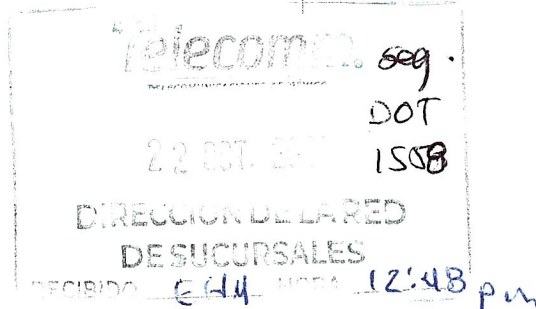 Telecomm. seg.
TELECOMUNICACIONES DE MÉXICO
DOT
22 OCT. 1508
DIRECCION DE LA RED
DE SUCURSALES
RECIBIDO HORA 12:48 pm